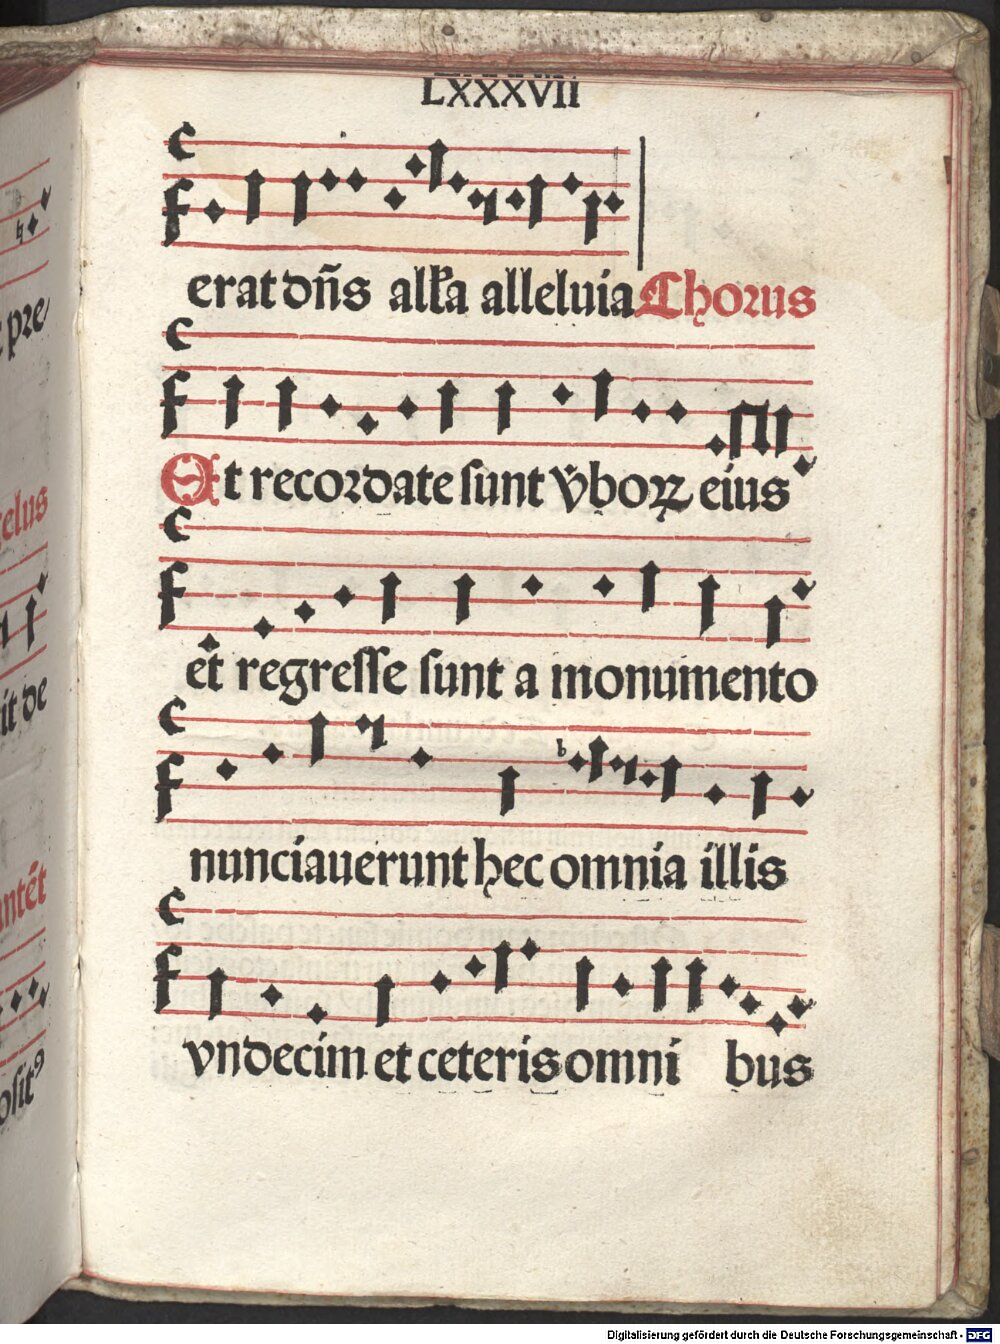 LXXXVII
erat dn̄s all'a alleluia Chorus
Et recordate sunt v̾boꝝ eius
et regresse sunt a monumento
nunciauerunt hec omnia illis
vndecim et ceteris omni bus
pre
elus
it de
antēt
ositꝰ
Digitalisierung gefördert durch die Deutsche Forschungsgemeinschaft - DFG